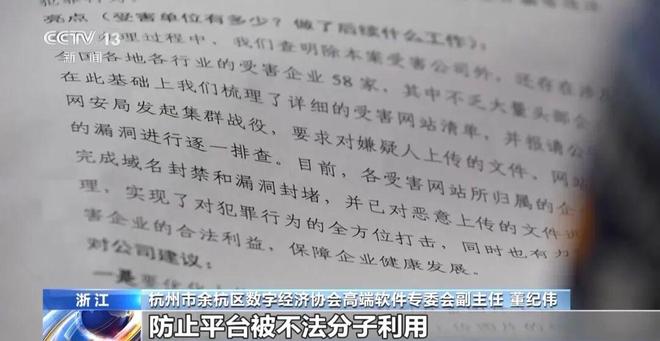 CCTV 13
新闻
犯罪行为。
亮点(受害单位有多少?做了后续什么工作):
办理过程中,我们查明除本案受害公司外,还存在涉及
全国各地各行业的受害企业58家,其中不乏大量头部企
在此基础上我们梳理了详细的受害网站清单,并报请公
网安局发起集群战役,要求对嫌疑人上传的文件、网站
的漏洞进行逐一排查。目前,各受害网站所归属的企
完成域名封禁和漏洞封堵,并已对恶意上传的文件进
理,实现了对犯罪行为的全方位打击,同时也有力
害企业的合法利益,保障企业健康发展。
对公司建议:
一是
浙江
杭州市余杭区数字经济协会高端软件专委会副主任 董纪伟
防止平台被不法分子利用